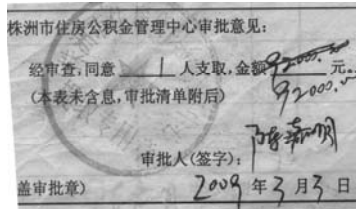 株洲市住房公积金管理中心审批意见：
经审查，同意 1 人支取，金额 92000.00 元。
92000.00
(本表未含息，审批清单附后)
审批人(签字)：
盖审批章) 2009 年 3 月 3 日